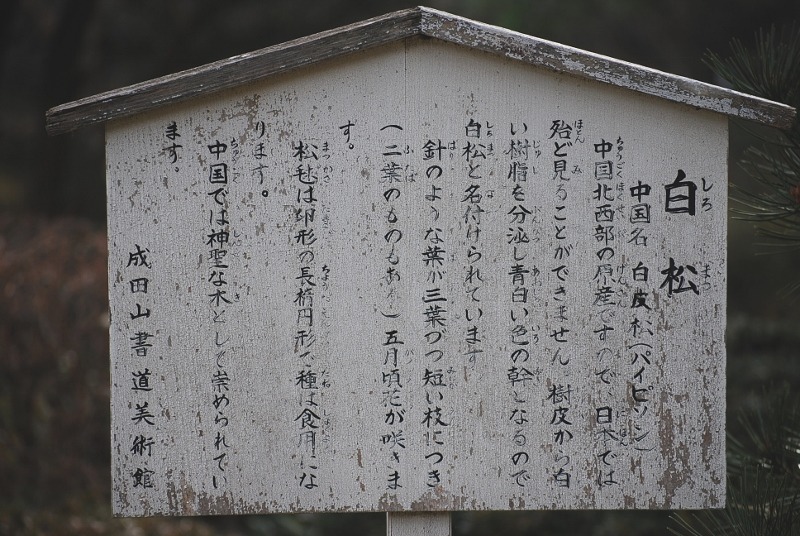 白松
中国名 白皮松(パイピソン)
中国北西部の原産ですので、日本では
殆ど見ることができません 樹皮から白
い樹脂を分泌し青白い色の幹となるので
白松と名付けられています
針のような葉が三葉づつ短い枝につき
(二葉のものもあり)五月頃花が咲きま
す。
松毬は卵形の長楕円形で種は食用にな
ります。
中国では神聖な木として崇められてい
ます。
成田山書道美術館